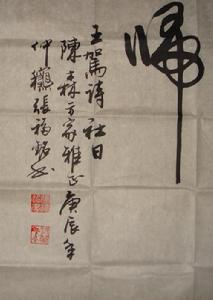 歸
王駕詩社日
陳森方家雅正庚辰年
仲張福銘书